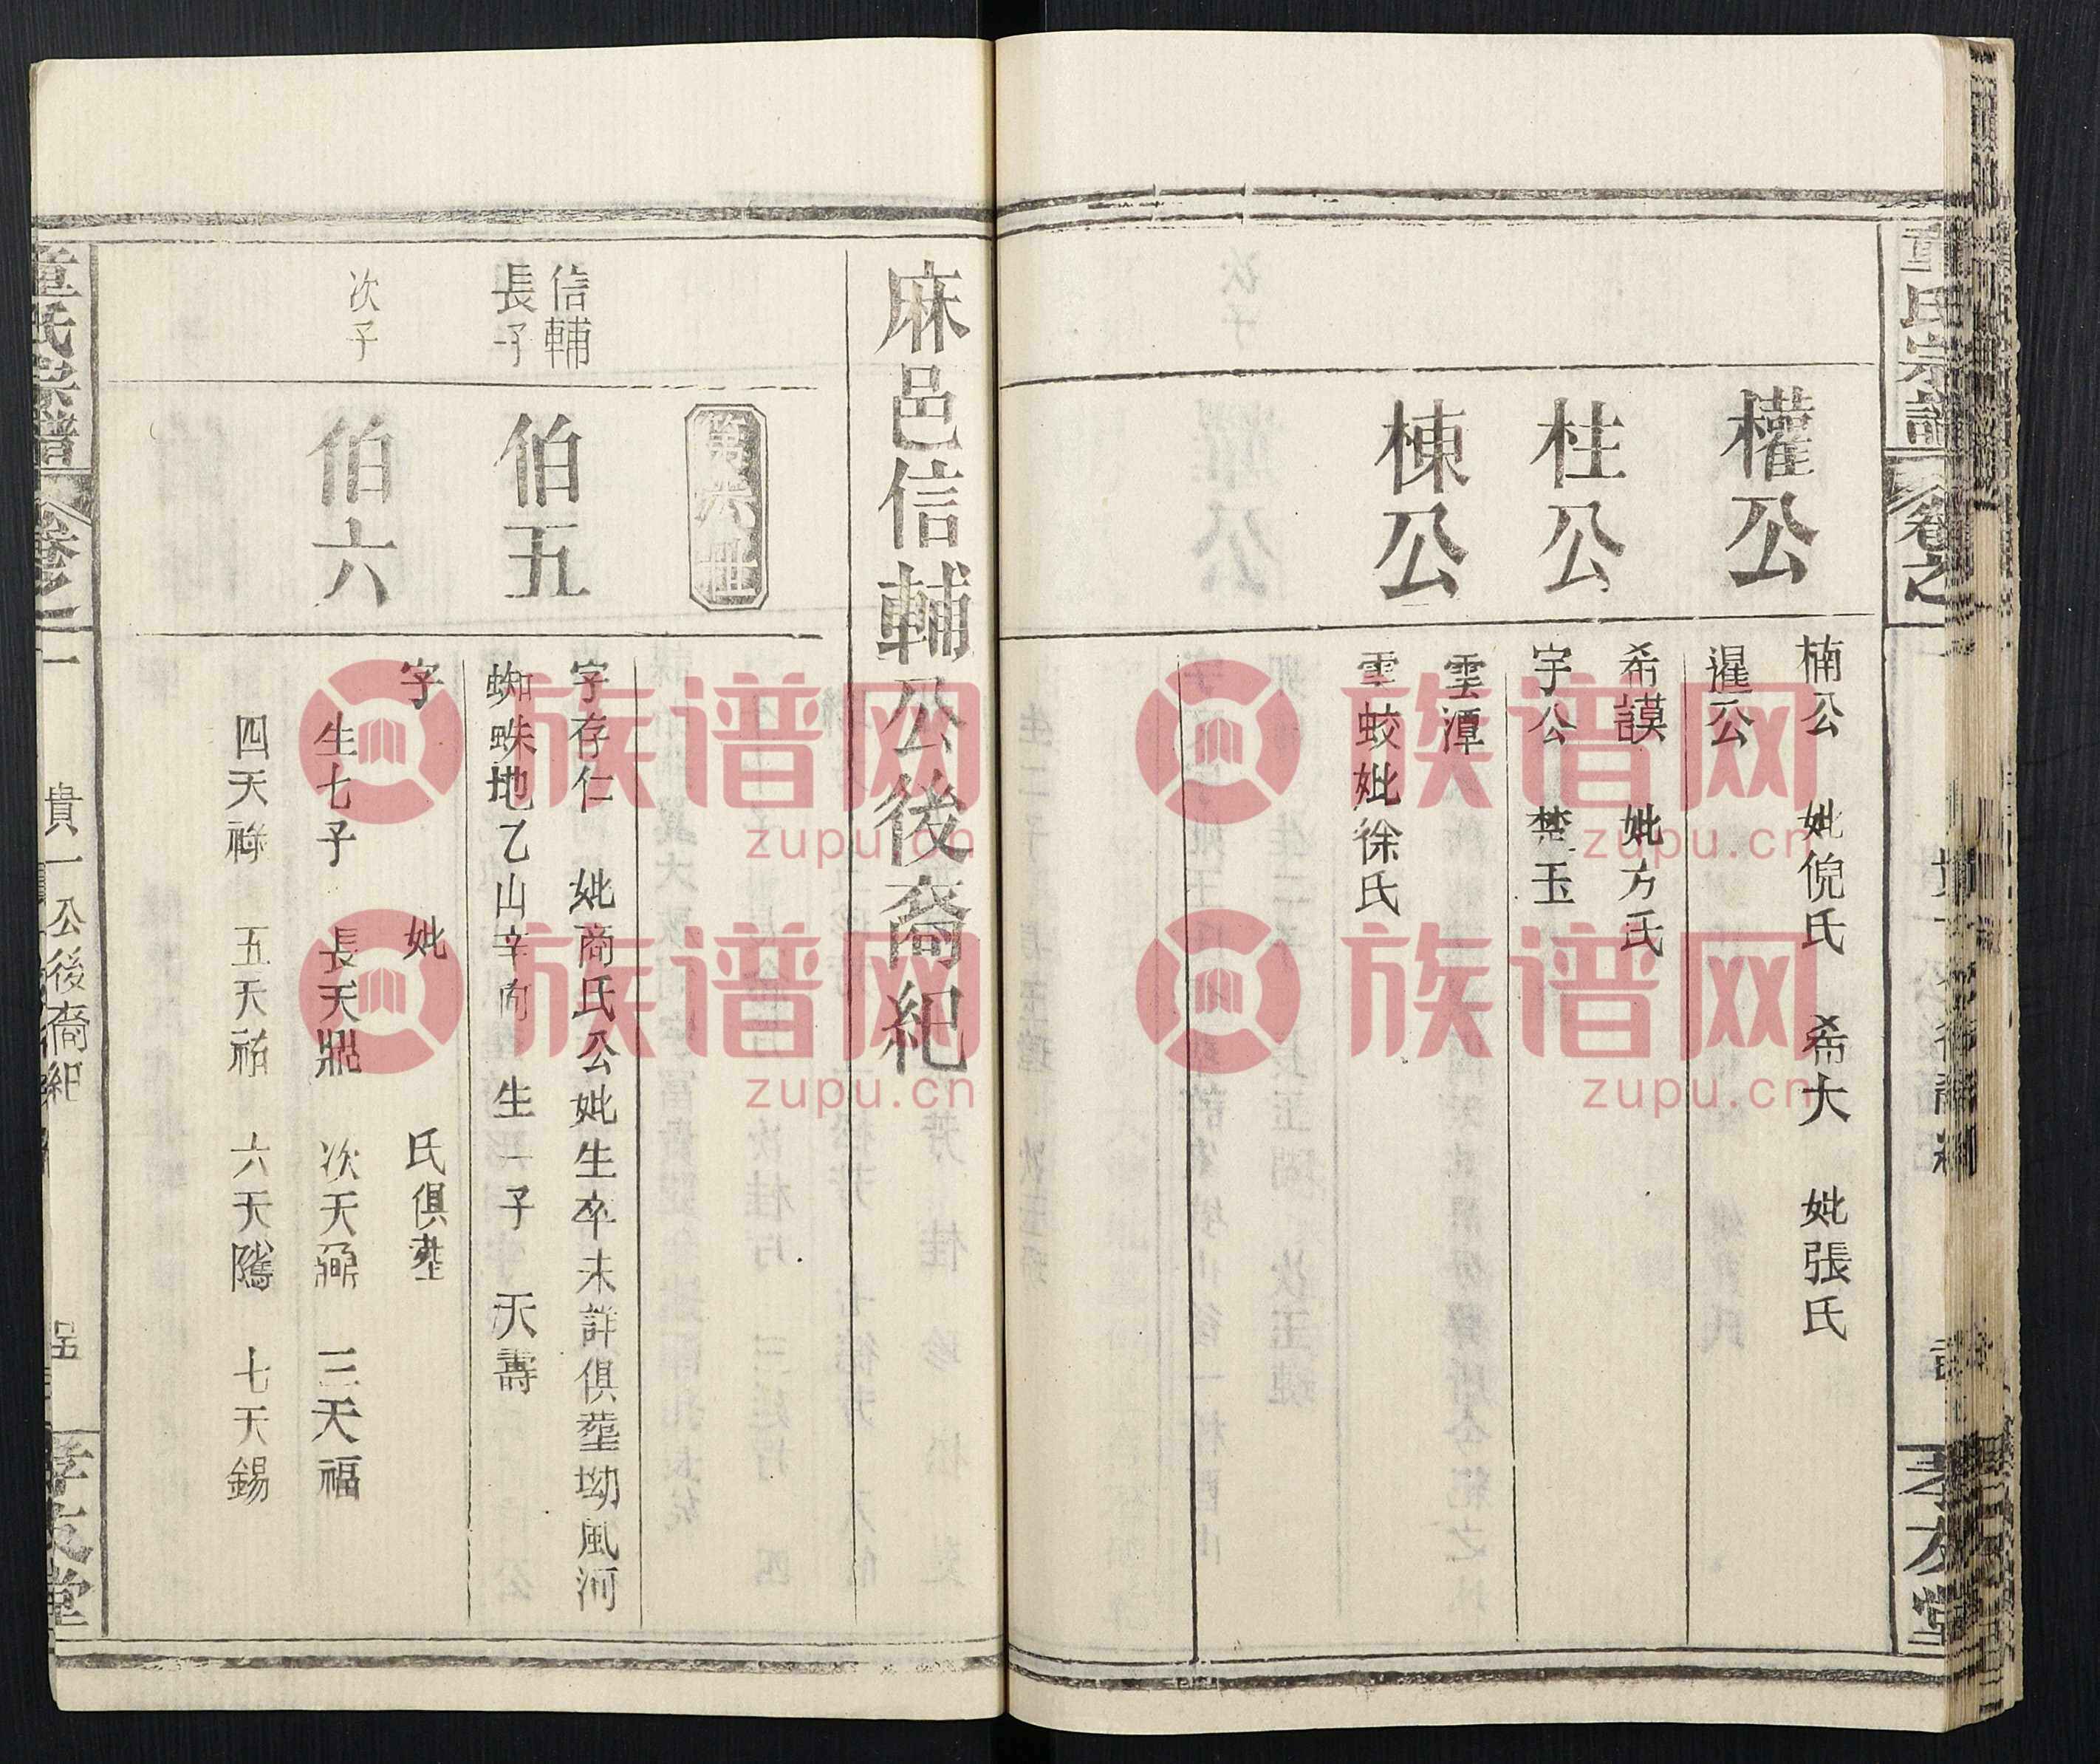 童氏宗譜
卷之一
孝友堂
權公
楠公 妣倪氏 希大 妣張氏
暹公
桂公
希謨 妣方氏
宇公 楚玉
棟公
雲潭
雲蛟妣徐氏
麻邑信輔公後裔紀
第六世
信輔
長子
伯五
字存仁 妣商氏公妣生卒未詳俱塟坳風河
蜘蛛地乙山辛向 生一子 天壽
次子
伯六
字 妣 氏俱塟
生七子 長天鼎 次天鼐 三天福
四天祿 五天祐 六天隲 七天錫
童氏宗譜
卷之一
貴一公後裔紀
孝友堂
族谱网
zupu.cn
族谱网
zupu.cn
族谱网
zupu.cn
族谱网
zupu.cn